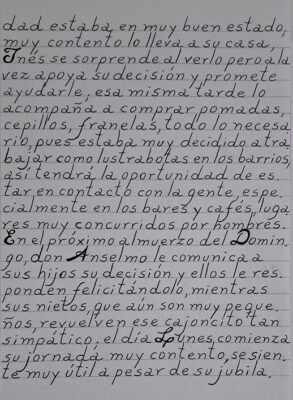 dad estaba en muy buen estado,
muy contento lo lleva a su casa,
Inés se sorprende al verlo pero a la
vez apoya su decisión y promete
ayudarle; esa misma tarde lo
acompaña a comprar pomadas,
cepillos, franelas, todo lo necesa
rio, pues estaba muy decidido a tra
bajar como lustrabotas en los barrios,
así tendrá la oportunidad de es.
tar en contacto con la gente, espe.
cialmente en los bares y cafés, luga
res muy concurridos por hombres.
En el próximo almuerzo del Domin.
go, don Anselmo le comunica a
sus hijos su decisión y ellos le res.
ponden felicitándolo, mientras
sus nietos, que aún son muy peque.
ños, revuelven ese cajoncito tan
simpático; el día Lunes, comienza
su jornada muy contento, se sien.
te muy útil a pesar de su jubila.